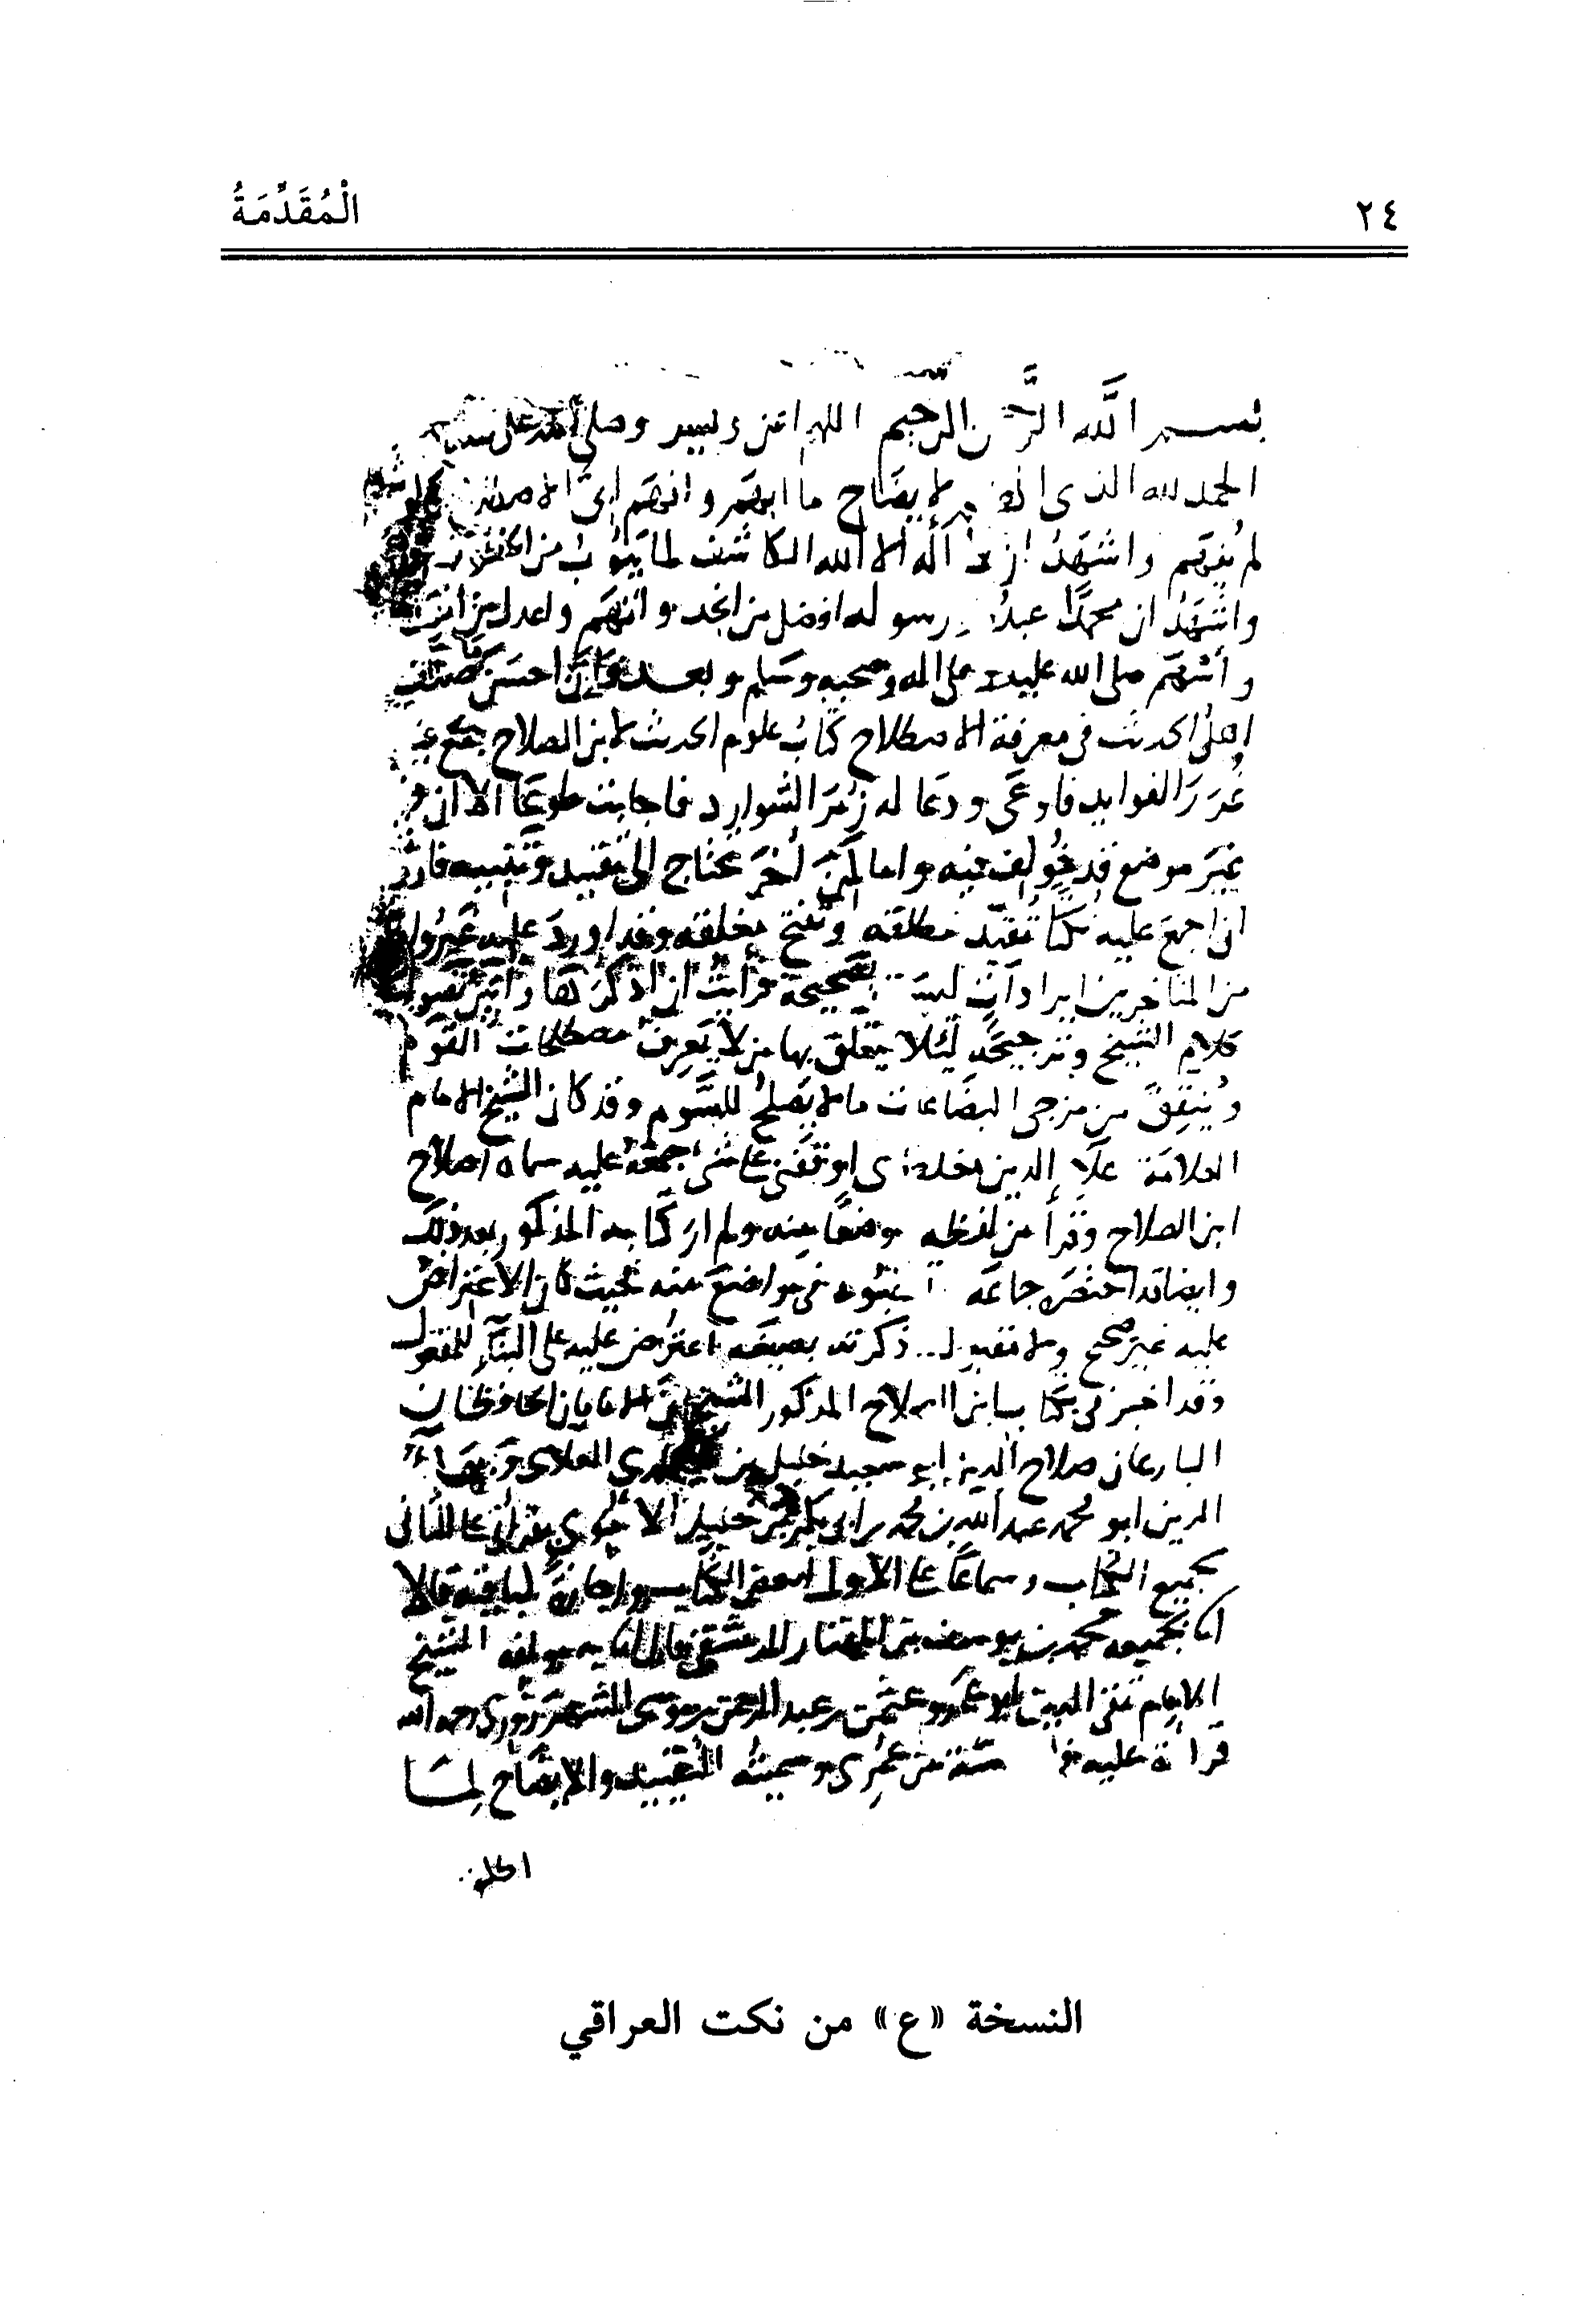 ٢٤
الْمُقَدِّمَةُ
بسم الله الرحمن الرحيم اللهم اعن ويسر وصلى الله على سيدنا
الحمد لله الذى لايضاح ما ابهم وافهم
لم يفهم واشهد ان لا اله الا الله الكاشف لما ينوب من
واشهد ان محمدا عبده ورسوله افضل من انجد واتهم واعدل من
واشهم صلى الله عليه وعلى اله وصحبه وسلم وبعد فان احسن ما صنف
اهل الحديث فى معرفة الاصطلاح كتاب علوم الحديث لابن الصلاح جمع فيه
غُرَرَ الفوايد فاوعى ودعا له زُمَرَ الشوارد فاجابت طوعا الا ان فيه
غير موضع قد خولف فيه واماكن اُخَر تحتاج الى تقييد وتنبيه فاردت
ان اجمع عليه نكتا تقيد مطلقه وتفتح مغلقه وقد اورد عليه غير واحد
من المتاخرين ايرادات ليست بصحيحة فرأيت ان اذكرها وابين تصويب
كلام الشيخ وترجيحه ليلا يتعلق بها من لا يعرف مصطلحات القوم
وينفق من مزجى البضاعات ما لا يصلح للسوم وقد كان الشيخ الامام
العلامة علا الدين مغلطاى اوقفنى على شى جمعه عليه سماه اصلاح
ابن الصلاح وقرأ من لفظه موضعا منه ولم ار كتابه المذكور بعد ذلك
وايضا قد اختصره جماعه وتعقبوه فى مواضع منه فحيث كان الاعتراض
عليه غير صحيح ولا مقبول ذكرته بصيغه اعترض عليه على البنآء للمفعول
وقد اخبرنى بكتاب ابن الصلاح المذكور الشيخان الامامان الحافظان
البارعان صلاح الدين ابو سعيد خليل بن كيكلدي العلاى وبهاء
الدين ابو محمد عبد الله بن محمد بن ابى بكر بن خليل الاموي بقرأتى على الثانى
بجميع الكتاب وسماعًا على الاول لبعض الكتاب واجازة لباقيه قالا
انا بجميعه محمد بن يوسف بن المهتار الدمشقى قال انا به مولفه الشيخ
الامام تقى الدين ابو عمرو عثمن بن عبد الرحمن بن موسى الشهرزورى رحمه الله
قراة عليه سنة من عمرى وسميته التقييد والايضاح لما
اطلق
النسخة «ع» من نكت العراقي